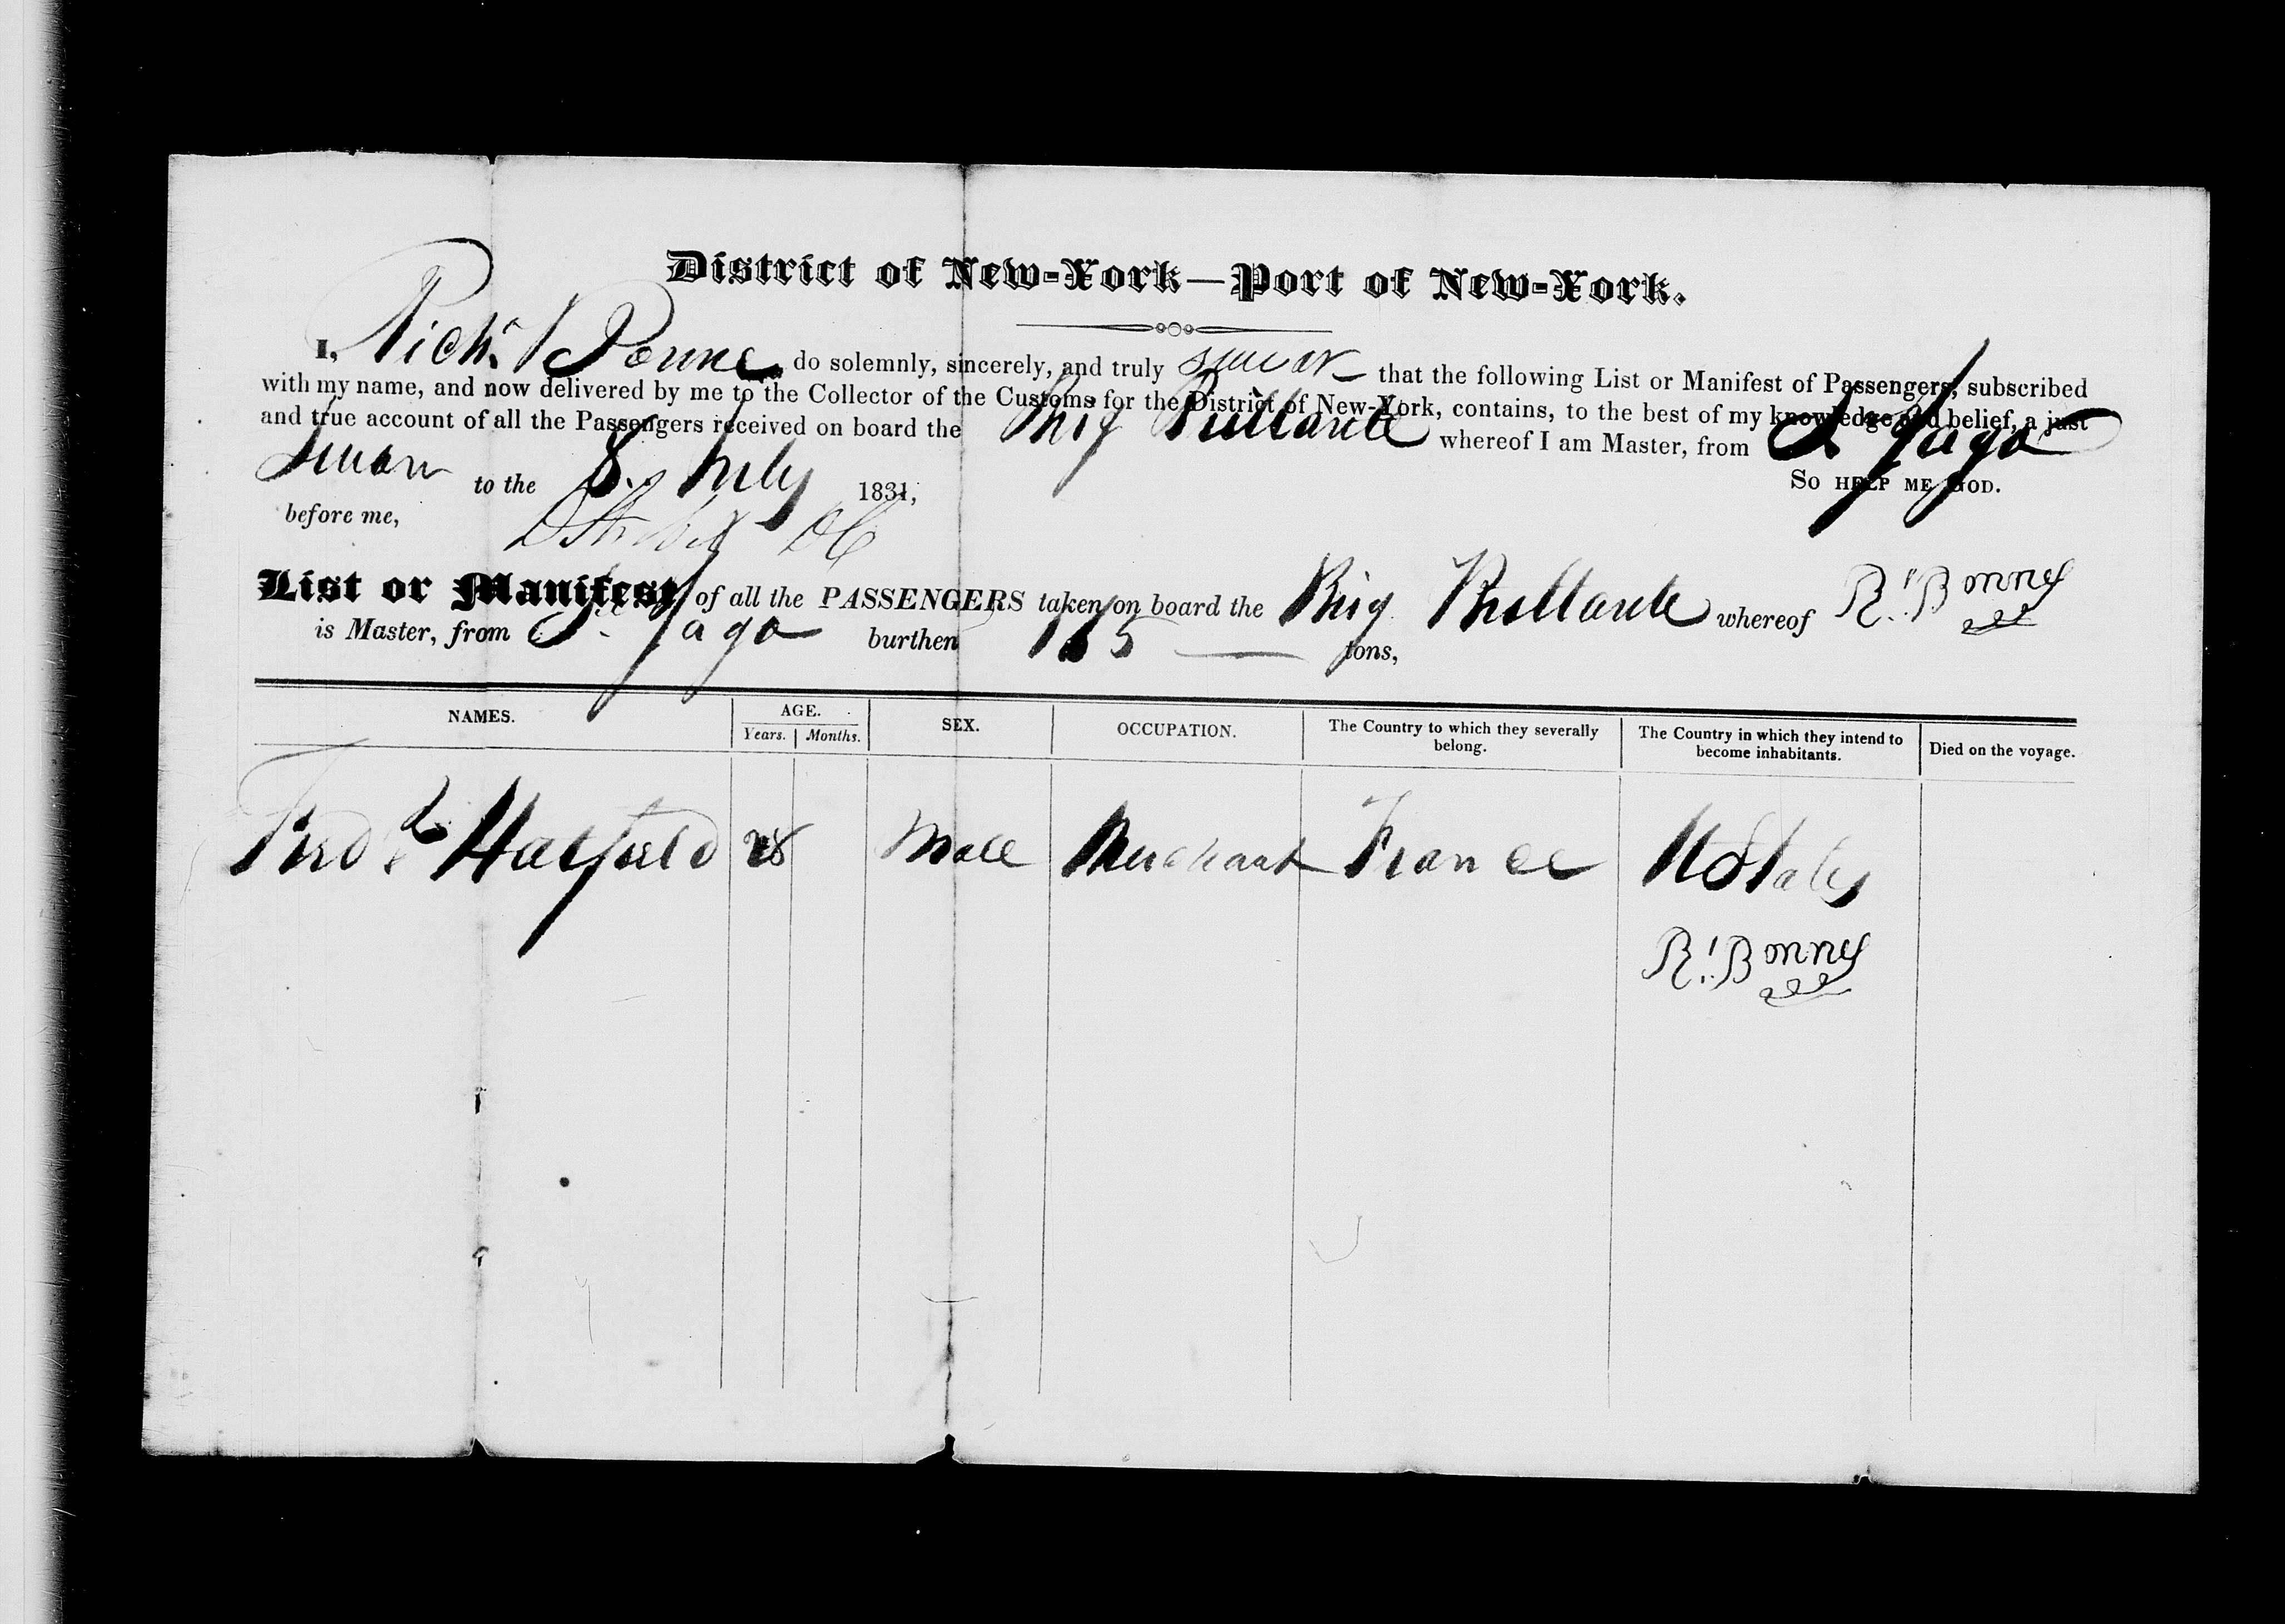 District of New-York—Port of New-York.
I, Richd. Bonne do solemnly, sincerely, and truly swear that the following List or Manifest of Passengers, subscribed
with my name, and now delivered by me to the Collector of the Customs for the District of New-York, contains, to the best of my knowledge and belief, a just
and true account of all the Passengers received on board the Brig Brillante whereof I am Master, from St Jago
Sworn to the 8. July 1831, So HELP ME GOD.
before me,
List or Manifest of all the PASSENGERS taken on board the Brig Brillante whereof Rd. Bonney
is Master, from St. Jago burthen tons,
NAMES. AGE. SEX. OCCUPATION. The Country to which they severally belong. The Country in which they intend to become inhabitants. Died on the voyage.
Years. Months.
Fredk Hatfield 28 Male Merchant France U States
Rd. Bonney